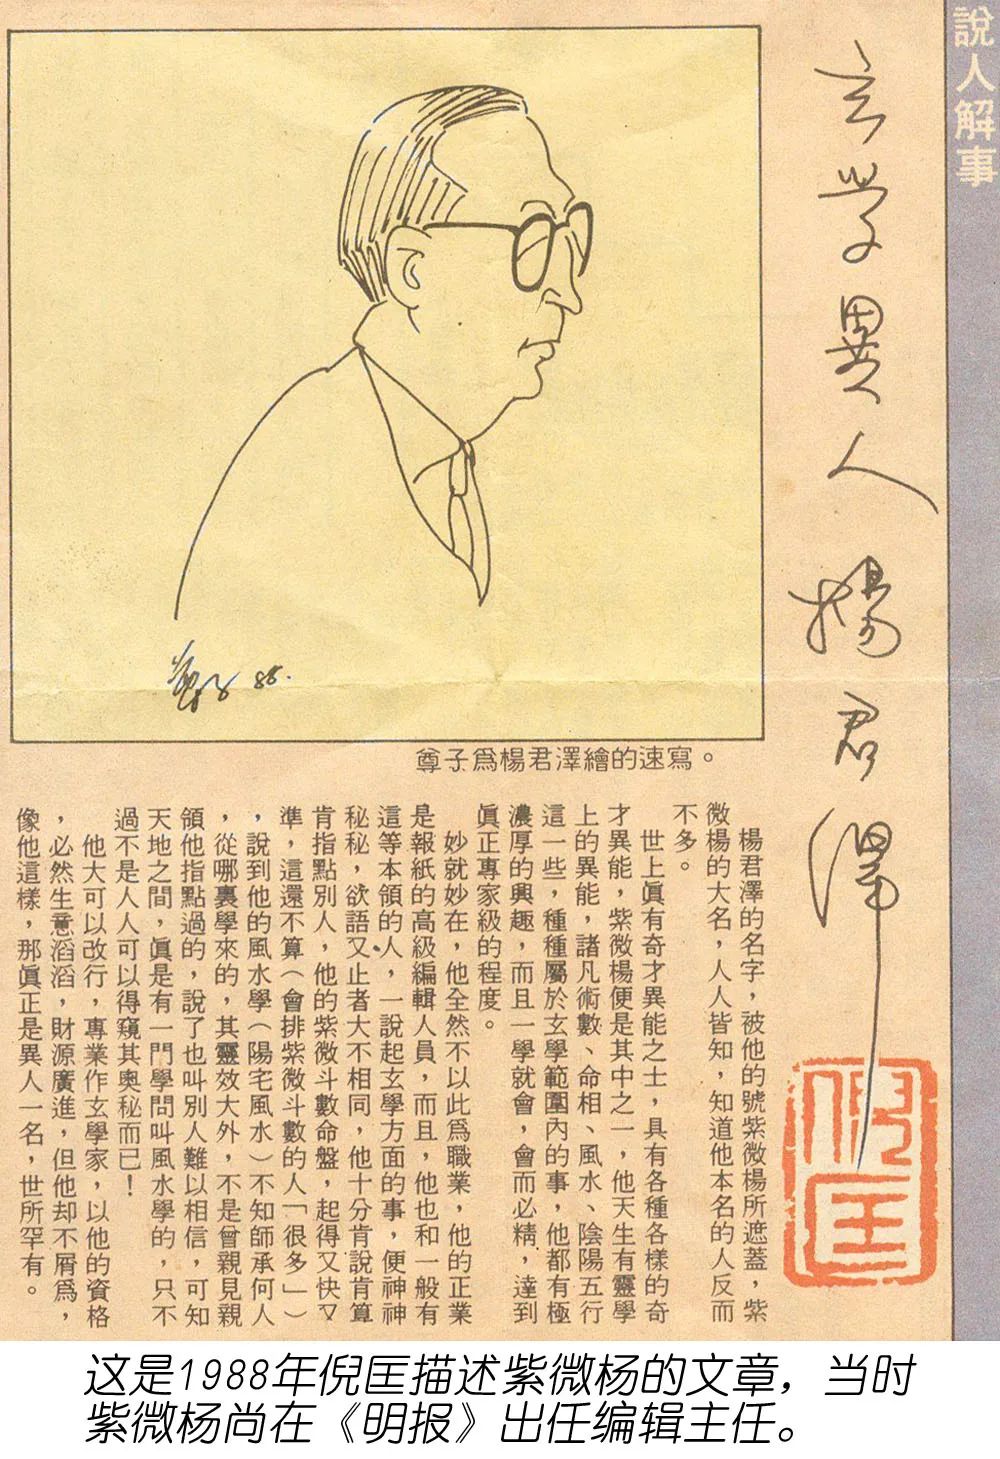 說人解事
玄學異人楊君澤
倪匡
尊子 88.
尊子爲楊君澤繪的速寫。
楊君澤的名字，被他的號紫微楊所遮蓋，紫
微楊的大名，人人皆知，知道他本名的人反而
不多。
世上眞有奇才異能之士，具有各種各樣的奇
才異能，紫微楊便是其中之一，他天生有靈學
上的異能，諸凡術數、命相、風水、陰陽五行
這一些，種種屬於玄學範圍內的事，他都有極
濃厚的興趣，而且一學就會，會而必精，達到
眞正專家級的程度。
妙就妙在，他全然不以此爲職業，他的正業
是報紙的高級編輯人員，而且，他也和一般有
這等本領的人，一說起玄學方面的事，便神神
秘秘，欲語又止者大不相同，他十分肯說肯算
肯指點別人，他的紫微斗數命盤，起得又快又
準，這還不算（會排紫微斗數的人「很多」）
，說到他的風水學（陽宅風水）不知師承何人
，從哪裏學來的，其靈效大外，不是曾親見親
領他指點過的，說了也叫別人難以相信，可知
天地之間，眞是有一門學問叫風水學的，只不
過不是人人可以得窺其奧秘而已！
他大可以改行，專業作玄學家，以他的資格
，必然生意滔滔，財源廣進，但他却不屑爲，
像他這樣，那眞正是異人一名，世所罕有。
这是1988年倪匡描述紫微杨的文章，当时
紫微杨尚在《明报》出任编辑主任。